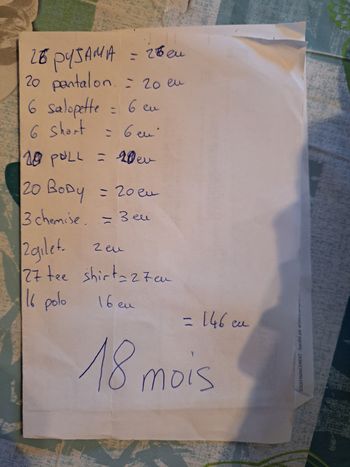 26 PYJAMA = 26 eu
20 pantalon = 20 eu
6 salopette = 6 eu
6 short = 6 eu
20 PULL = 20 eu
20 BODY = 20 eu
3 chemise. = 3 eu
2 gilet. 2 eu
27 tee shirt = 27 eu
16 polo 16 eu
= 146 eu
18 mois